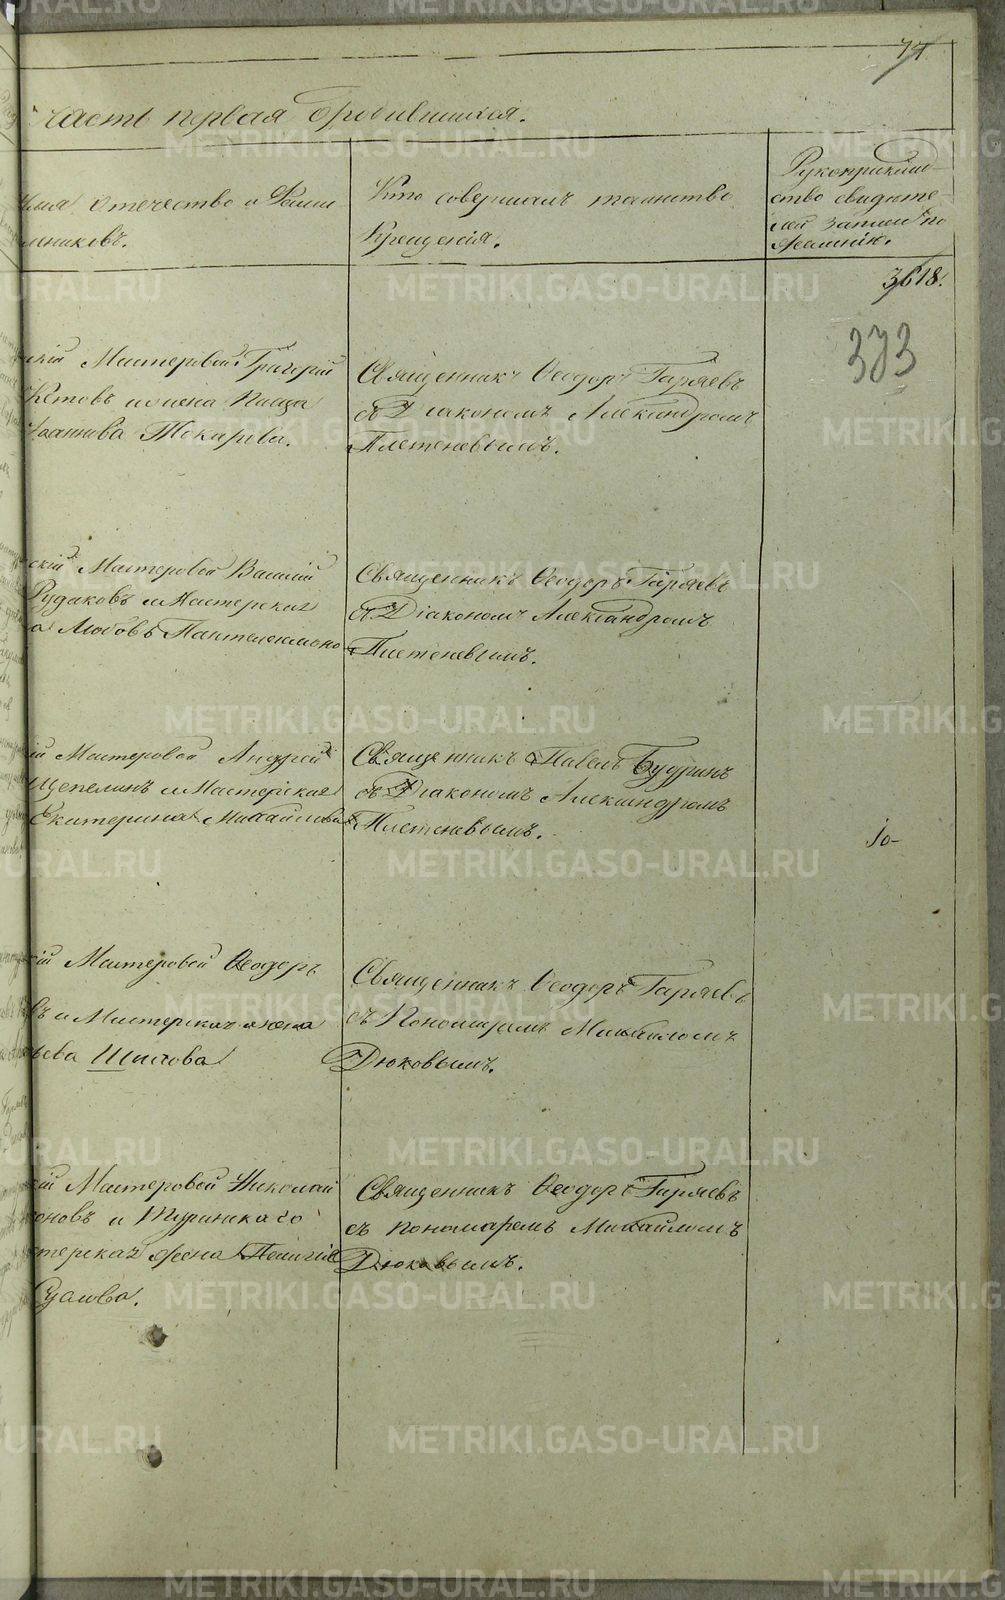 77.
Часть первая о родившихся.
Имя Отчество и Фами
емниковъ.
Кто совершалъ таинство
Крещенія.
Рукоприклад
ство свидѣте
лей записи по
желанію.
3618.
373
скій Мастеровой Григорій
Кетовъ и жена
Іоаннова Токарева.
Священникъ Ѳеодоръ Гаряевъ
съ Діакономъ Александромъ
Плетеневымъ.
скій Мастеровой Василій
Рудаковъ и Мастерская
а Любовь Пантелеимоно
Священникъ Ѳеодоръ Гаряевъ
съ Діакономъ Александромъ
Плетеневымъ.
ій Мастеровой Андрей
Щепелинъ и Мастерская
Екатерина Михайлова
Священникъ Павелъ Будринъ
съ Діакономъ Александромъ
Плетеневымъ.
10-
кій Мастеровой Ѳеодоръ
въ и Мастерская жена
ьева Шилова
Священникъ Ѳеодоръ Гаряевъ
съ Пономаремъ Михайломъ
Дюковымъ.
кій Мастеровой Николай
оновъ и Туринскаго
стерская жена Пелагія
Священникъ Ѳеодоръ Гаряевъ
съ пономаремъ Михайломъ
Дюковымъ.
METRIKI.GASO-URAL.RU